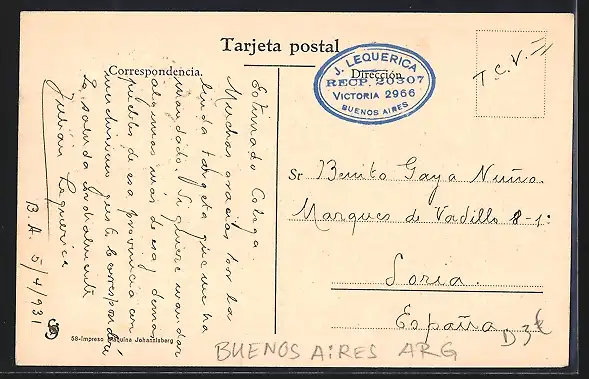 Tarjeta postal
Correspondencia.
Dirección.
J. LEQUERICA
RECP. 20307
VICTORIA 2966
BUENOS AIRES
T. C. V.
Estimado Colega.
Muchas gracias por la
linda targeta que me ha
mandado. Si quiere mandar
algunas mas de esa, demas
pueblos de esa provincia con
muchisimo gusto le corresponderé
Le saluda cordialmente
Julián Lequerica
B. A. 5/4/931
Sr Benito Gaya Nuño.
Marques de Vadillo 8-1º
Soria.
España
D 3€
58-Impreso Maquina Johannisberg
BUENOS AIRES ARG